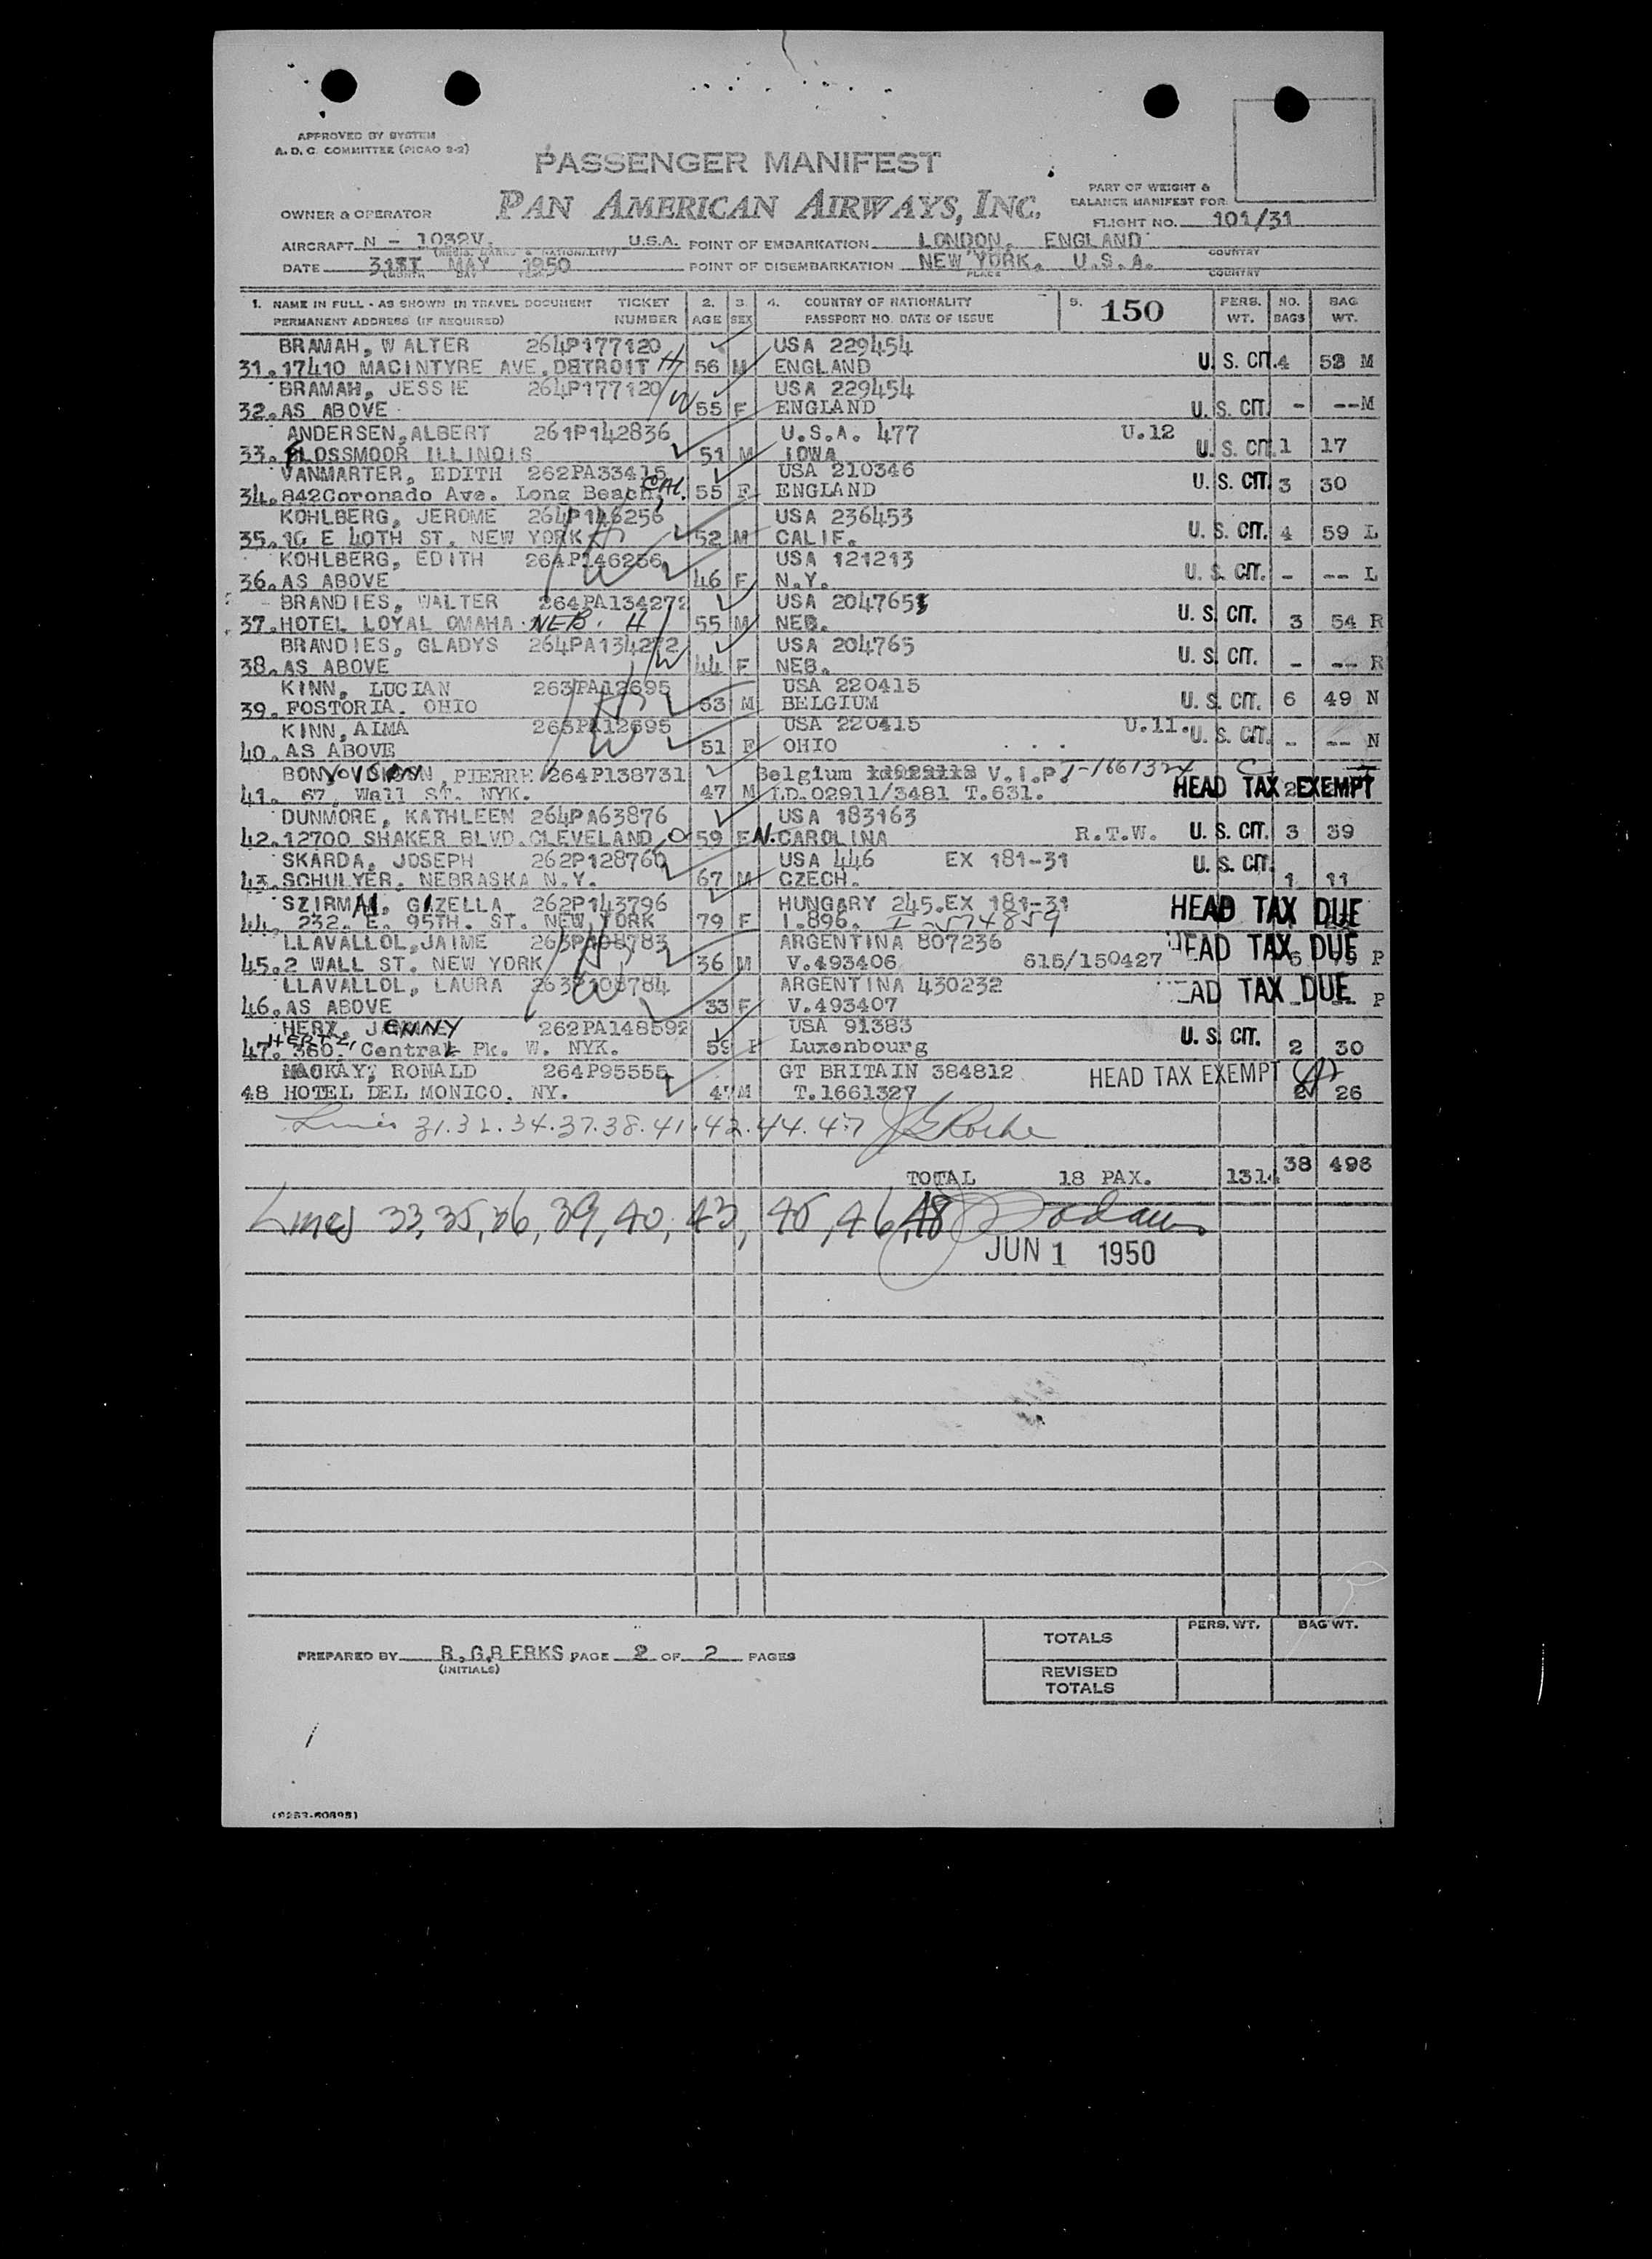 APPROVED BY SYSTEM
A. D. C. COMMITTEE (PICAO 2-2)
PASSENGER MANIFEST
PAN AMERICAN AIRWAYS, INC.
PART OF WEIGHT &
BALANCE MANIFEST FOR
OWNER & OPERATOR
FLIGHT NO. 101/31
AIRCRAFT N - 1032V. U.S.A. POINT OF EMBARKATION LONDON, ENGLAND
(REGIS. MARKS & NATIONALITY) COUNTRY
DATE 31ST MAY 1950 POINT OF DISEMBARKATION NEW YORK, U.S.A.
MONTH DAY YEAR PLACE COUNTRY
1. NAME IN FULL - AS SHOWN IN TRAVEL DOCUMENT TICKET 2. 3. 4. COUNTRY OF NATIONALITY 5. 150 PERS. NO. BAG
PERMANENT ADDRESS (IF REQUIRED) NUMBER AGE SEX PASSPORT NO. DATE OF ISSUE WT. BAGS WT.
BRAMAH, WALTER 264P177120 USA 229454
31. 17410 MACINTYRE AVE. DETROIT H 56 M ENGLAND U. S. CIT. 4 52 M
BRAMAH, JESSIE 264P177120 USA 229454
32. AS ABOVE W 55 F ENGLAND U. S. CIT. - --M
ANDERSEN, ALBERT 261P142836 U.S.A. 477 U.12
33. FLOSSMOOR ILLINOIS 51 M IOWA U. S. CIT. 1 17
VANMARTER, EDITH 262PA33415 USA 210346
34. 842 Coronado Ave. Long Beach, CAL. 55 F ENGLAND U. S. CIT. 3 30
KOHLBERG, JEROME 264P146256 USA 236453
35. 10 E 40TH ST. NEW YORK H 52 M CALIF. U. S. CIT. 4 59 L
KOHLBERG, EDITH 264P146256 USA 121213
36. AS ABOVE W 46 F N.Y. U. S. CIT. - -- L
BRANDIES, WALTER 264PA134272 USA 204765
37. HOTEL LOYAL OMAHA NEB. H 55 M NEB. U. S. CIT. 3 54 R
BRANDIES, GLADYS 264PA134272 USA 204765
38. AS ABOVE W 44 F NEB. U. S. CIT. - -- R
KINN, LUCIAN 263PA12695 USA 220415
39. FOSTORIA. OHIO H 53 M BELGIUM U. S. CIT. 6 49 N
KINN, ALMA 263PA12695 USA 220415 U.11.
40. AS ABOVE W 51 F OHIO U. S. CIT. - -- N
PIERRE 264P138731 Belgium V.I.P. T-1661324
41. 67, Wall ST. NYK. 47 M I.D.02911/3481 T.631. HEAD TAX EXEMPT 2
DUNMORE, KATHLEEN 264PA63876 USA 183163
42. 12700 SHAKER BLVD. CLEVELAND, O 59 F N. CAROLINA R.T.W. U. S. CIT. 3 39
SKARDA, JOSEPH 262P128760 USA 446 EX 181-31
43. SCHULYER, NEBRASKA N.Y. 67 M CZECH. U. S. CIT. 1 11
SZIRMAI, GIZELLA 262P143796 HUNGARY 245. EX 181-31
44. 232. E. 95TH. ST. NEW YORK 79 F I.896. I-574859 HEAD TAX DUE
LLAVALLOL, JAIME 263P108783 ARGENTINA 807236
45. 2 WALL ST. NEW YORK H 36 M V.493406 615/150427 HEAD TAX DUE P
LLAVALLOL, LAURA 263P108784 ARGENTINA 430232
46. AS ABOVE W 33 F V.493407 HEAD TAX DUE -- P
HERTZ, JENNY 262PA148592 USA 91383
47. 360. Central Pk. W. NYK. 59 F Luxenbourg U. S. CIT. 2 30
MACKAY, RONALD 264P95555 GT BRITAIN 384812
48 HOTEL DEL MONICO, NY. 47 M T.1661327 HEAD TAX EXEMPT 2 26
Lines 31.32.34.37.38.41.42.44.47 Roche
TOTAL 18 PAX. 1314 38 496
Lines 33, 35, 36, 39, 40, 43, 45, 46, 48
JUN 1 1950
TOTALS PERS. WT. BAG WT.
PREPARED BY R.G.BERKS PAGE 2 OF 2 PAGES
(INITIALS)
REVISED
TOTALS